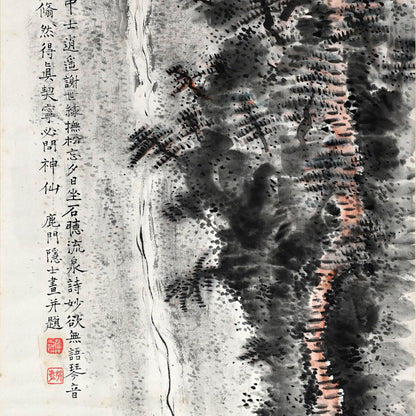 中士逍遥謝世緣撫松忘夕日坐石聽流泉詩妙欲無語琴音
翛然得真契寧必問神仙 鹿門隱士畫并題